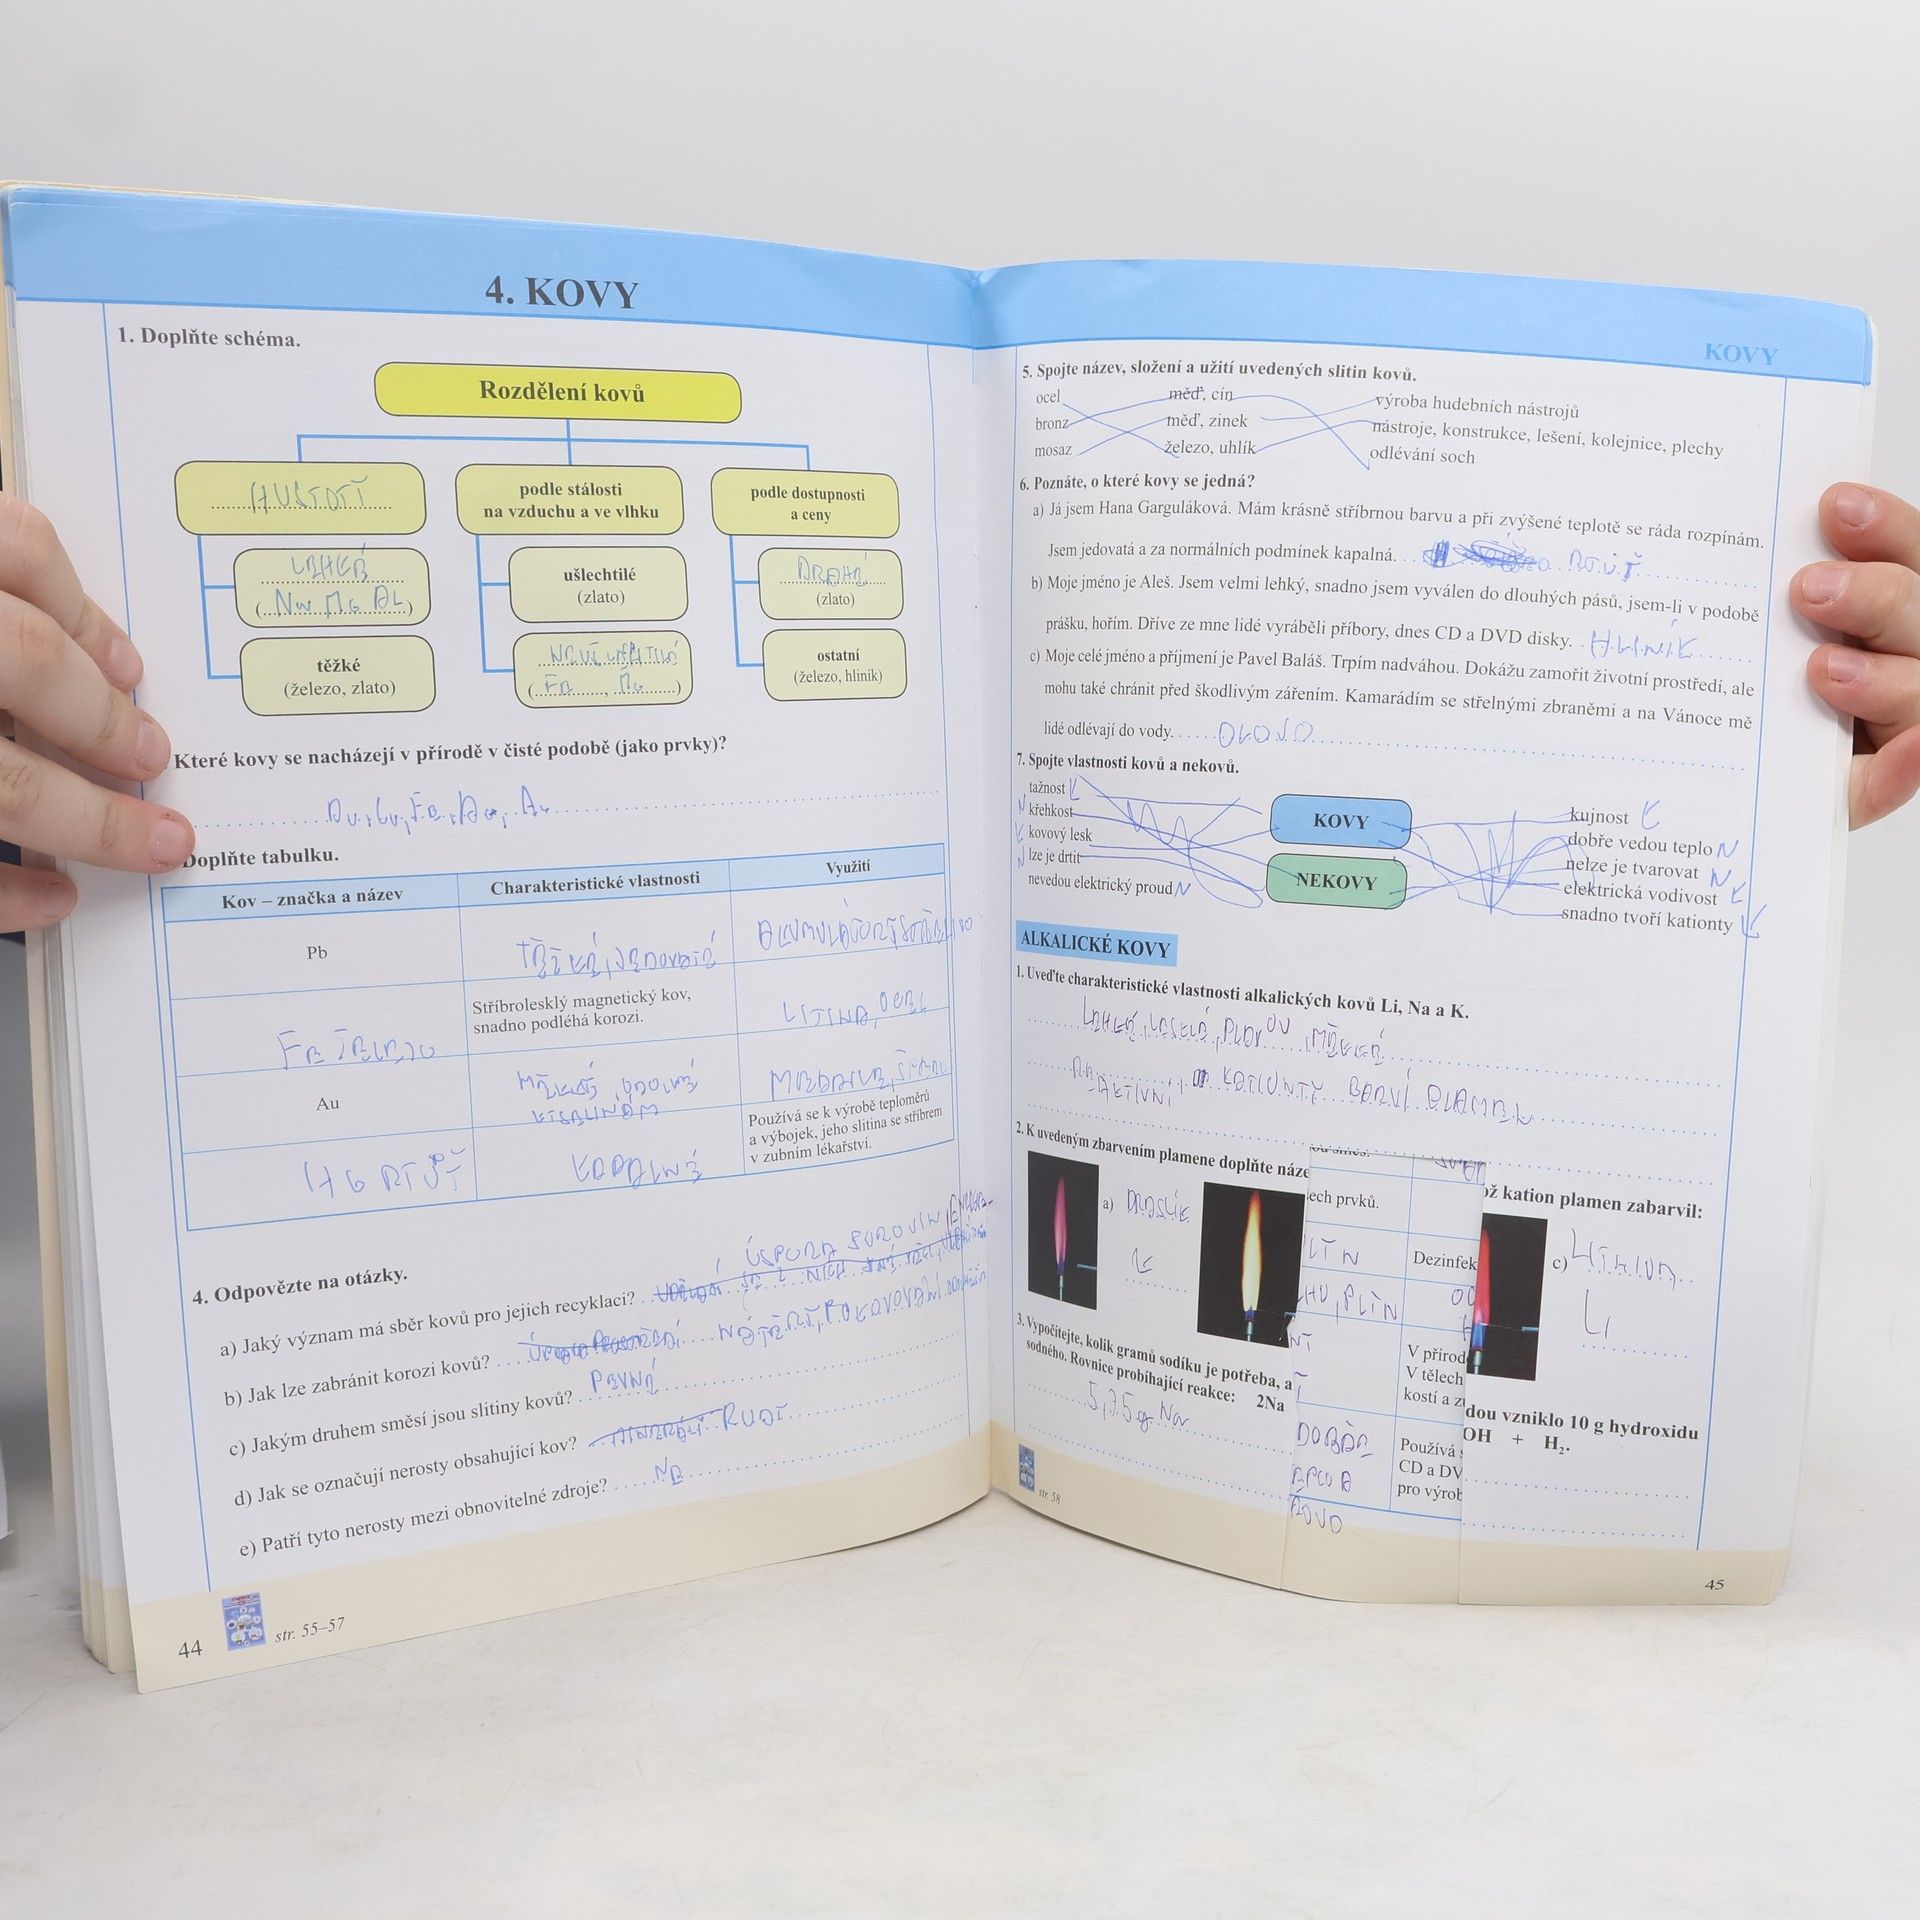 4. KOVY
1. Doplňte schéma.
Rozdělení kovů
HUSTOT
podle stálosti
na vzduchu a ve vlhku
podle dostupnosti
a ceny
LEHKÉ
ušlechtilé
(zlato)
DRAHÉ
(zlato)
těžké
(železo, zlato)
ostatní
(železo, hliník)
Které kovy se nacházejí v přírodě v čisté podobě (jako prvky)?
Doplňte tabulku.
Kov – značka a název
Charakteristické vlastnosti
Využití
Pb
TĚŽKÉ, JEDOVATÉ
Stříbrolesklý magnetický kov,
snadno podléhá korozi.
LITINA, OCEL
FE ŽELEZO
Au
HG RTUŤ
KAPALNÉ
Používá se k výrobě teploměrů
a výbojek, jeho slitina se stříbrem
v zubním lékařství.
4. Odpovězte na otázky.
ÚSPORA SUROVIN
a) Jaký význam má sběr kovů pro jejich recyklaci?
b) Jak lze zabránit korozi kovů? NÁTĚRY, POKOVOVÁNÍ
c) Jakým druhem směsí jsou slitiny kovů? PEVNÉ
d) Jak se označují nerosty obsahující kov? RUDY
e) Patří tyto nerosty mezi obnovitelné zdroje? NE
44
str. 55–57
KOVY
5. Spojte název, složení a užití uvedených slitin kovů.
ocel
měď, cín
výroba hudebních nástrojů
bronz
měď, zinek
nástroje, konstrukce, lešení, kolejnice, plechy
mosaz
železo, uhlík
odlévání soch
6. Poznáte, o které kovy se jedná?
a) Já jsem Hana Garguláková. Mám krásně stříbrnou barvu a při zvýšené teplotě se ráda rozpínám.
Jsem jedovatá a za normálních podmínek kapalná. RTUŤ
b) Moje jméno je Aleš. Jsem velmi lehký, snadno jsem vyválen do dlouhých pásů, jsem-li v podobě
prášku, hořím. Dříve ze mne lidé vyráběli příbory, dnes CD a DVD disky. HLINÍK
c) Moje celé jméno a příjmení je Pavel Baláš. Trpím nadváhou. Dokážu zamořit životní prostředí, ale
mohu také chránit před škodlivým zářením. Kamarádím se střelnými zbraněmi a na Vánoce mě
lidé odlévají do vody. OLOVO
7. Spojte vlastnosti kovů a nekovů.
tažnost K
N křehkost
K kovový lesk
N lze je drtit
nevedou elektrický proud N
KOVY
NEKOVY
kujnost K
dobře vedou teplo N
nelze je tvarovat N
elektrická vodivost K
snadno tvoří kationty K
ALKALICKÉ KOVY
1. Uveďte charakteristické vlastnosti alkalických kovů Li, Na a K.
LEHKÉ, LESKLÉ, PLAVOU, MĚKKÉ
REAKTIVNÍ, KATIONTY BARVÍ PLAMEN
2. K uvedeným zbarvením plamene doplňte náze
ož kation plamen zabarvil:
a) DRASLÍK
K
c) LITHIUM
Li
ech prvků.
Dezinfek
HU, PLYN
V přírod
V tělech
kostí a zu
Používá s
CD a DV
pro výrob
3. Vypočítejte, kolik gramů sodíku je potřeba, a
dou vzniklo 10 g hydroxidu
sodného. Rovnice probíhající reakce: 2Na
OH + H₂.
5,75 g Na
str. 58
45